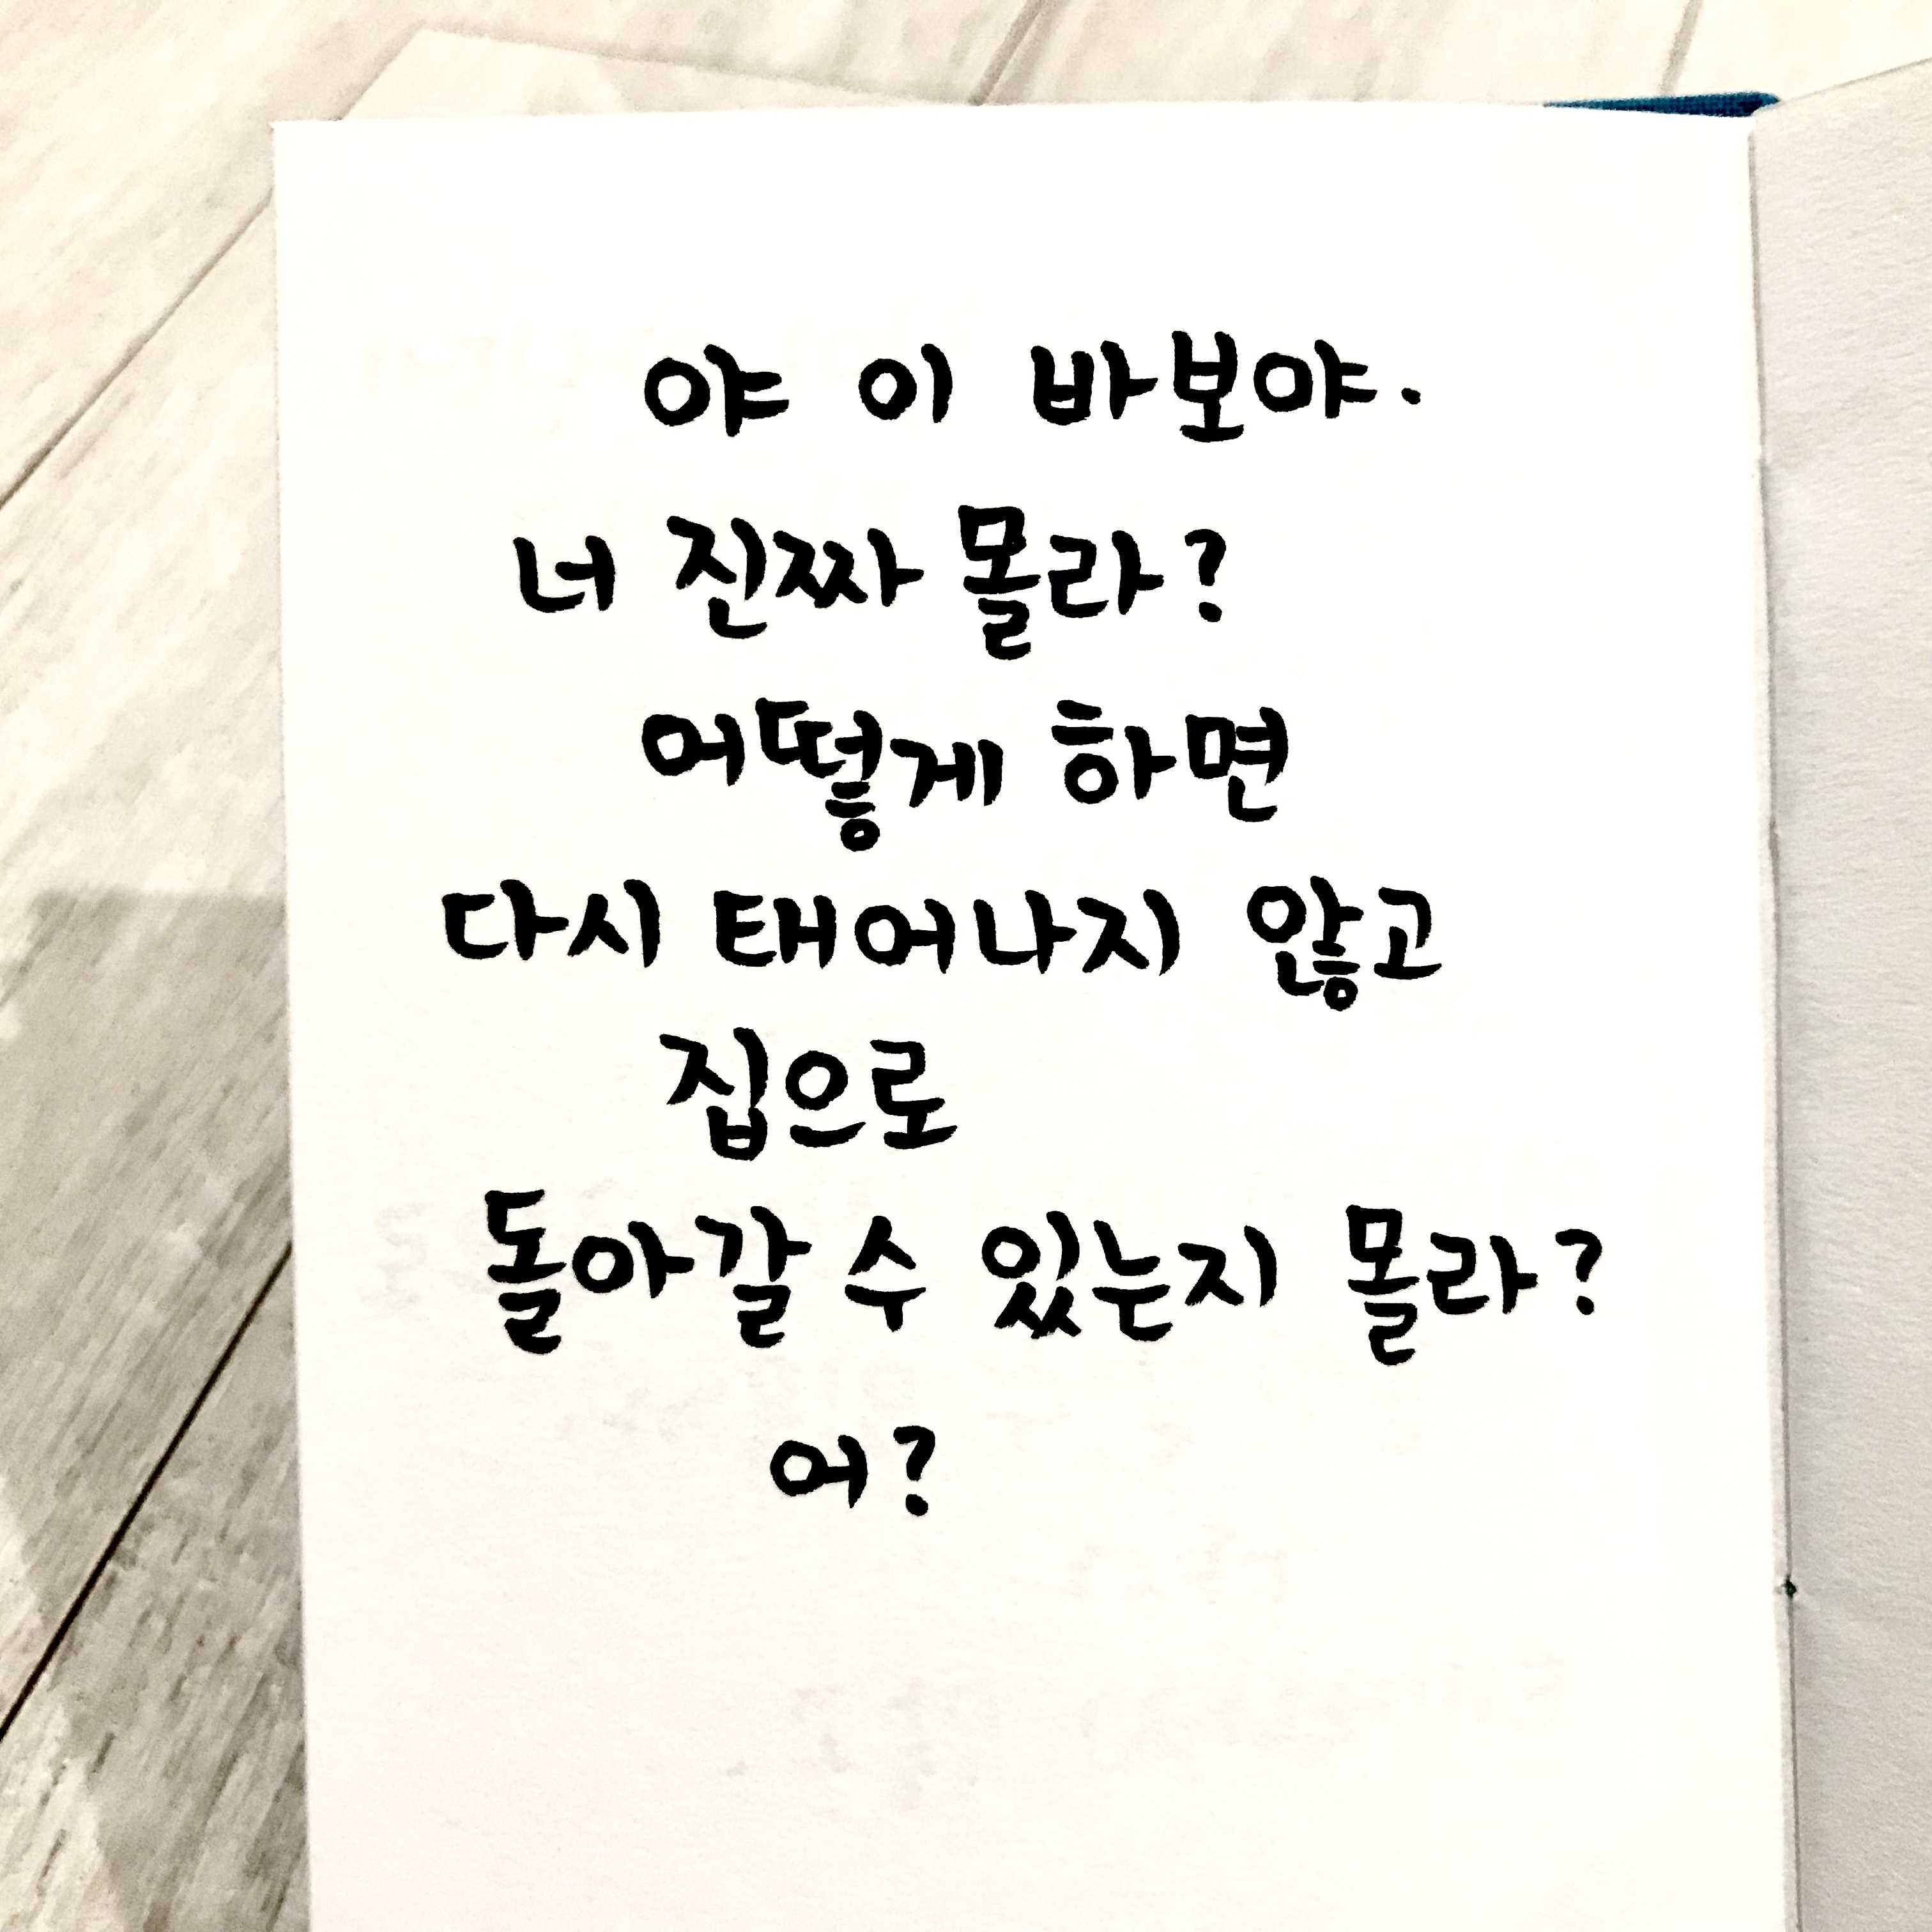 야 이 바보야.
너 진짜 몰라?
어떻게 하면
다시 태어나지 않고
집으로
돌아갈 수 있는지 몰라?
어?